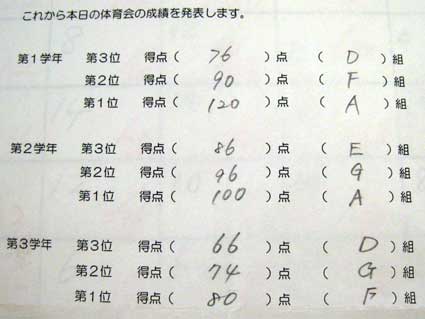 これから本日の体育会の成績を発表します。
第1学年 第3位 得点( 76 )点 ( D )組
第2位 得点( 90 )点 ( F )組
第1位 得点( 120 )点 ( A )組
第2学年 第3位 得点( 86 )点 ( E )組
第2位 得点( 96 )点 ( G )組
第1位 得点( 100 )点 ( A )組
第3学年 第3位 得点( 66 )点 ( D )組
第2位 得点( 74 )点 ( G )組
第1位 得点( 80 )点 ( F )組